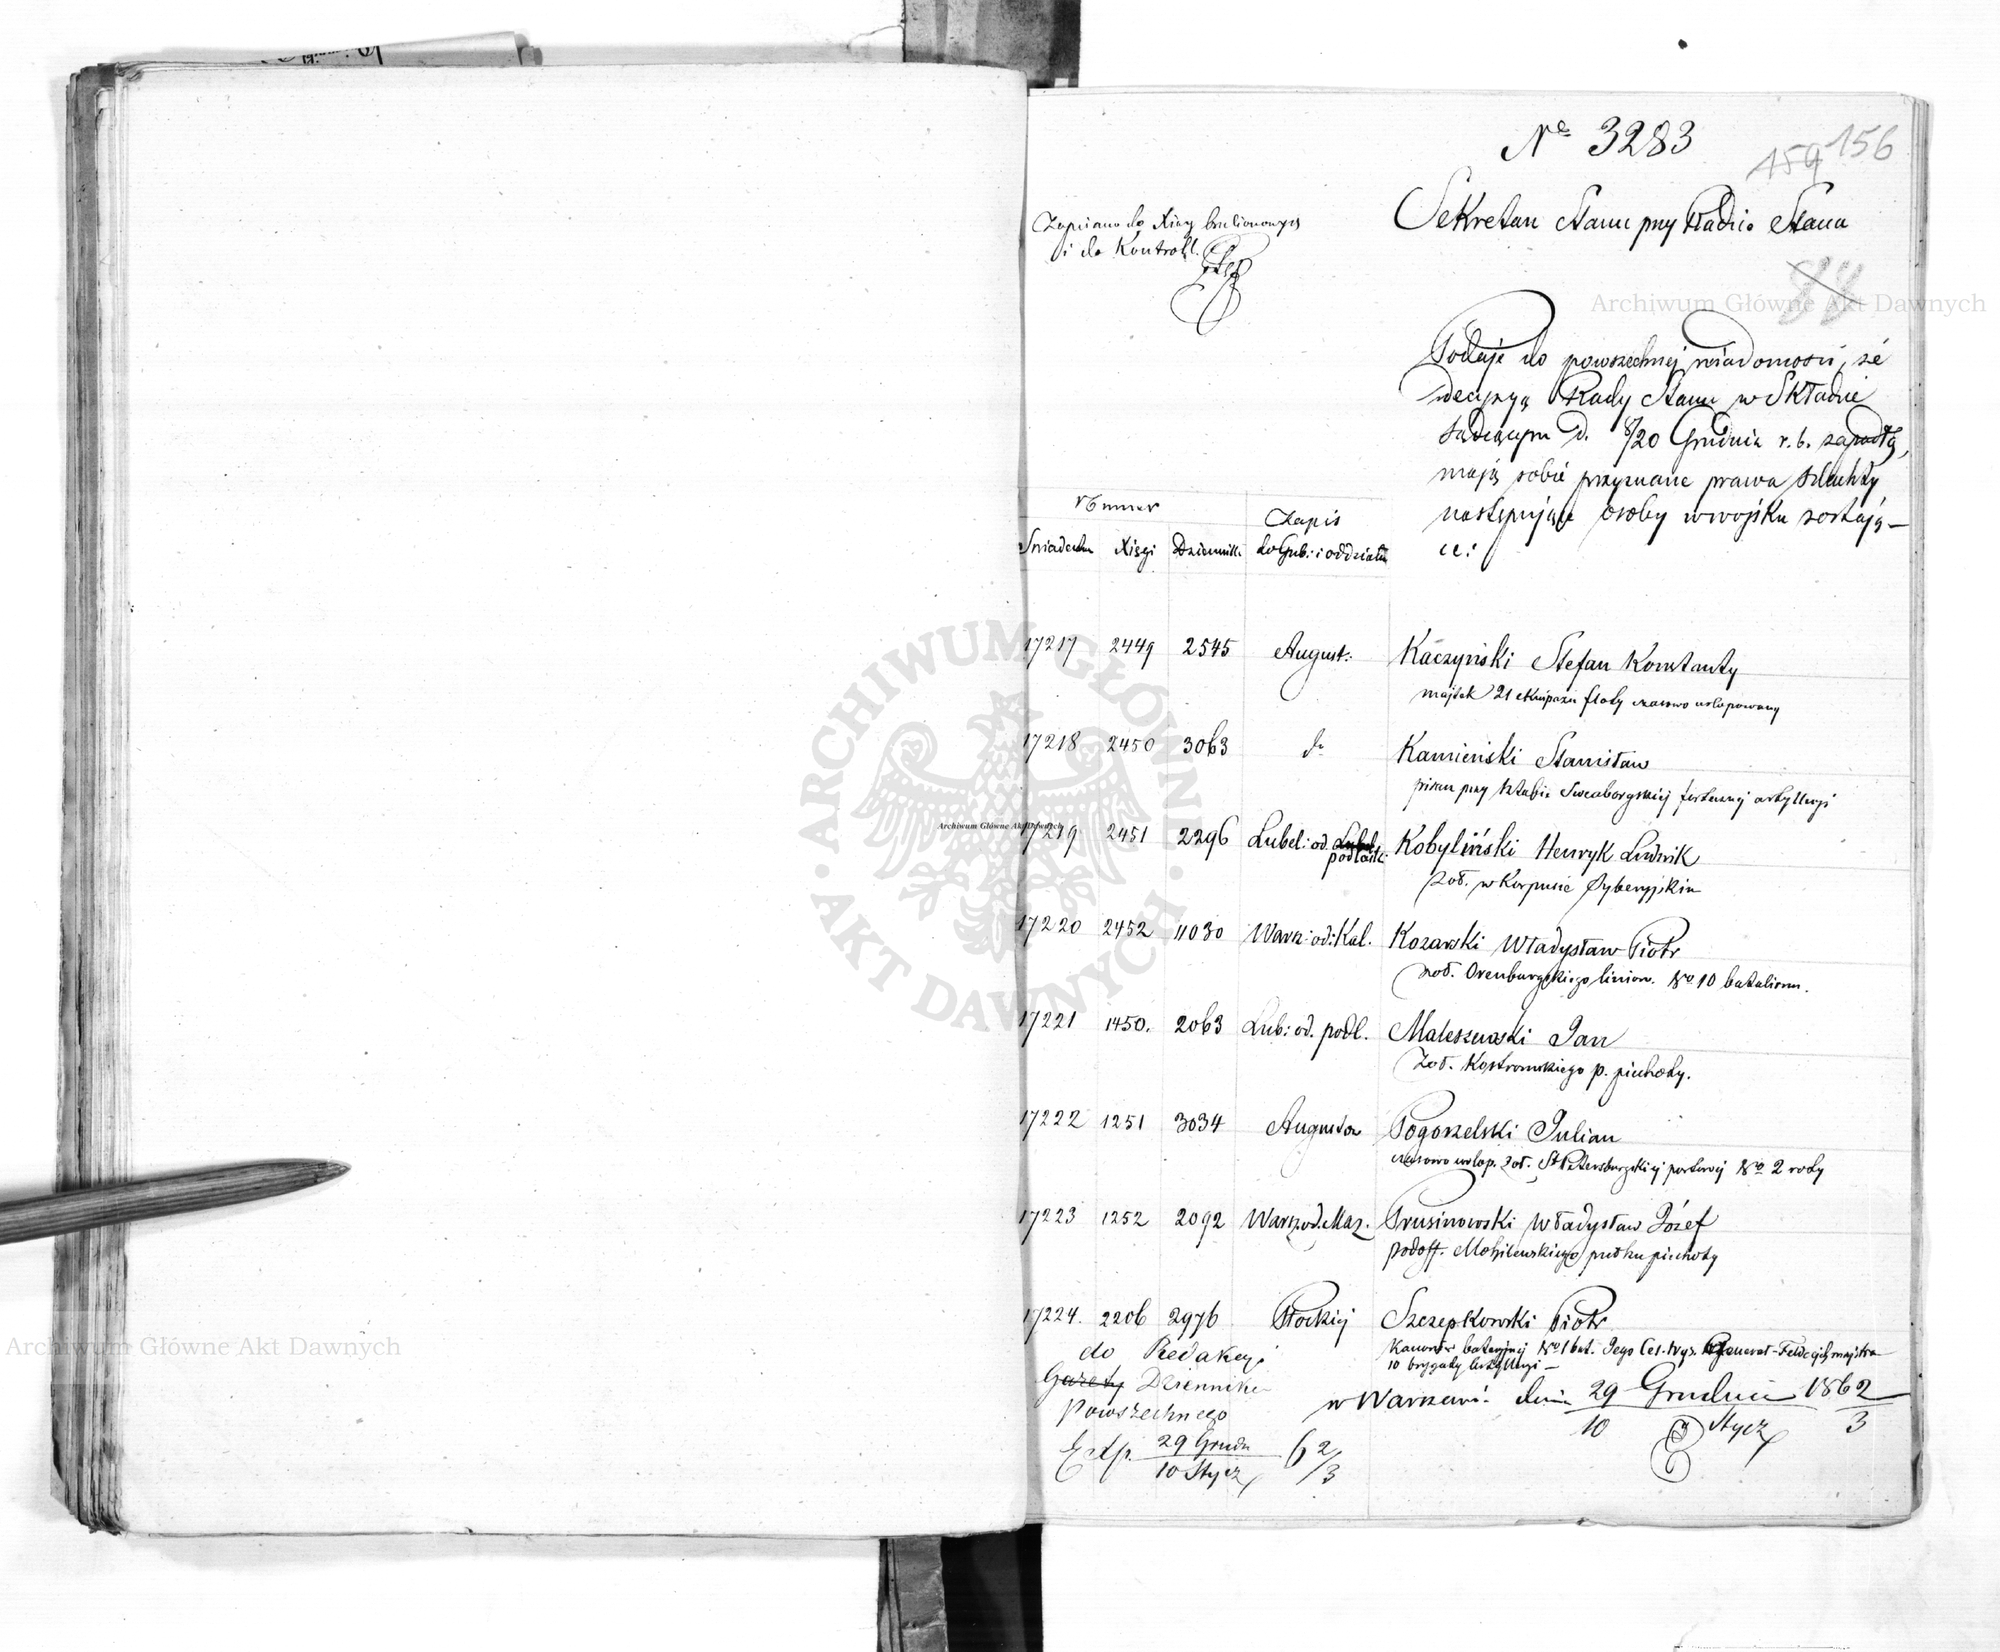 № 3283
159 156
Zapisano do Xiąg brulionowych
i do Kontroll.
Sekretarz Stanu przy Radzie Stanu
Podaje do powszechnej wiadomości, że
decyzyą Rady Stanu w Składzie
Sądzącym d. 8/20 Grudnia r. b. zapadłą,
mają sobie przyznane prawa szlachty
następujące osoby w wojsku zostają-
ce:
Numer
Zapis
Świadectw Xięgi Dziennik do Gub: i oddziału
17217 2449 2545 August: Kaczyński Stefan Konstanty
majtek 21 ekwipażu floty czasowo urlopowany
17218 2450 3063 do Kamieński Stanisław
pisarz przy sztabie Sweaborgskiej fortecznej artylleryi
17219 2451 2296 Lubel: od. Lubel podlaski Kobyliński Henryk Ludwik
żoł. w Korpusie Syberyjskim
17220 2452 11030 Warsz: od: Kal. Kozarski Władysław Piotr
żoł. Orenburgskiego linion. No 10 batalionu.
17221 1450. 2063 Lub: od. podl. Maleszewski Jan
żoł. Kostromskiego p. piechoty.
17222 1251 3034 Augustow Pogorzelski Julian
czasowo urlop. żoł. St Petersburgskiej portowej No 2 roty
17223 1252 2092 Warsz od. Maz. Prusinowski Władysław Józef
podoff. Mohilewskiego pułku piechoty
17224. 2206 2976 Płockiej Szczepkowski Piotr
Kanonier bateryjnej No 1 bat. Jego Ces. Wys. Generał-Feldcejchmajstra
10 brygady artylleryi —
do Redakcyi
Gazety Dziennika
Powszechnego
w Warszawie dnia 29 Grudnia 1862
10 Stycz 3
Exp. 29 Grudn 62
10 Stycz /3
Archiwum Główne Akt Dawnych
Archiwum Główne Akt Dawnych
Archiwum Główne Akt Dawnych
ARCHIWUM GŁÓWNE · AKT DAWNYCH ·